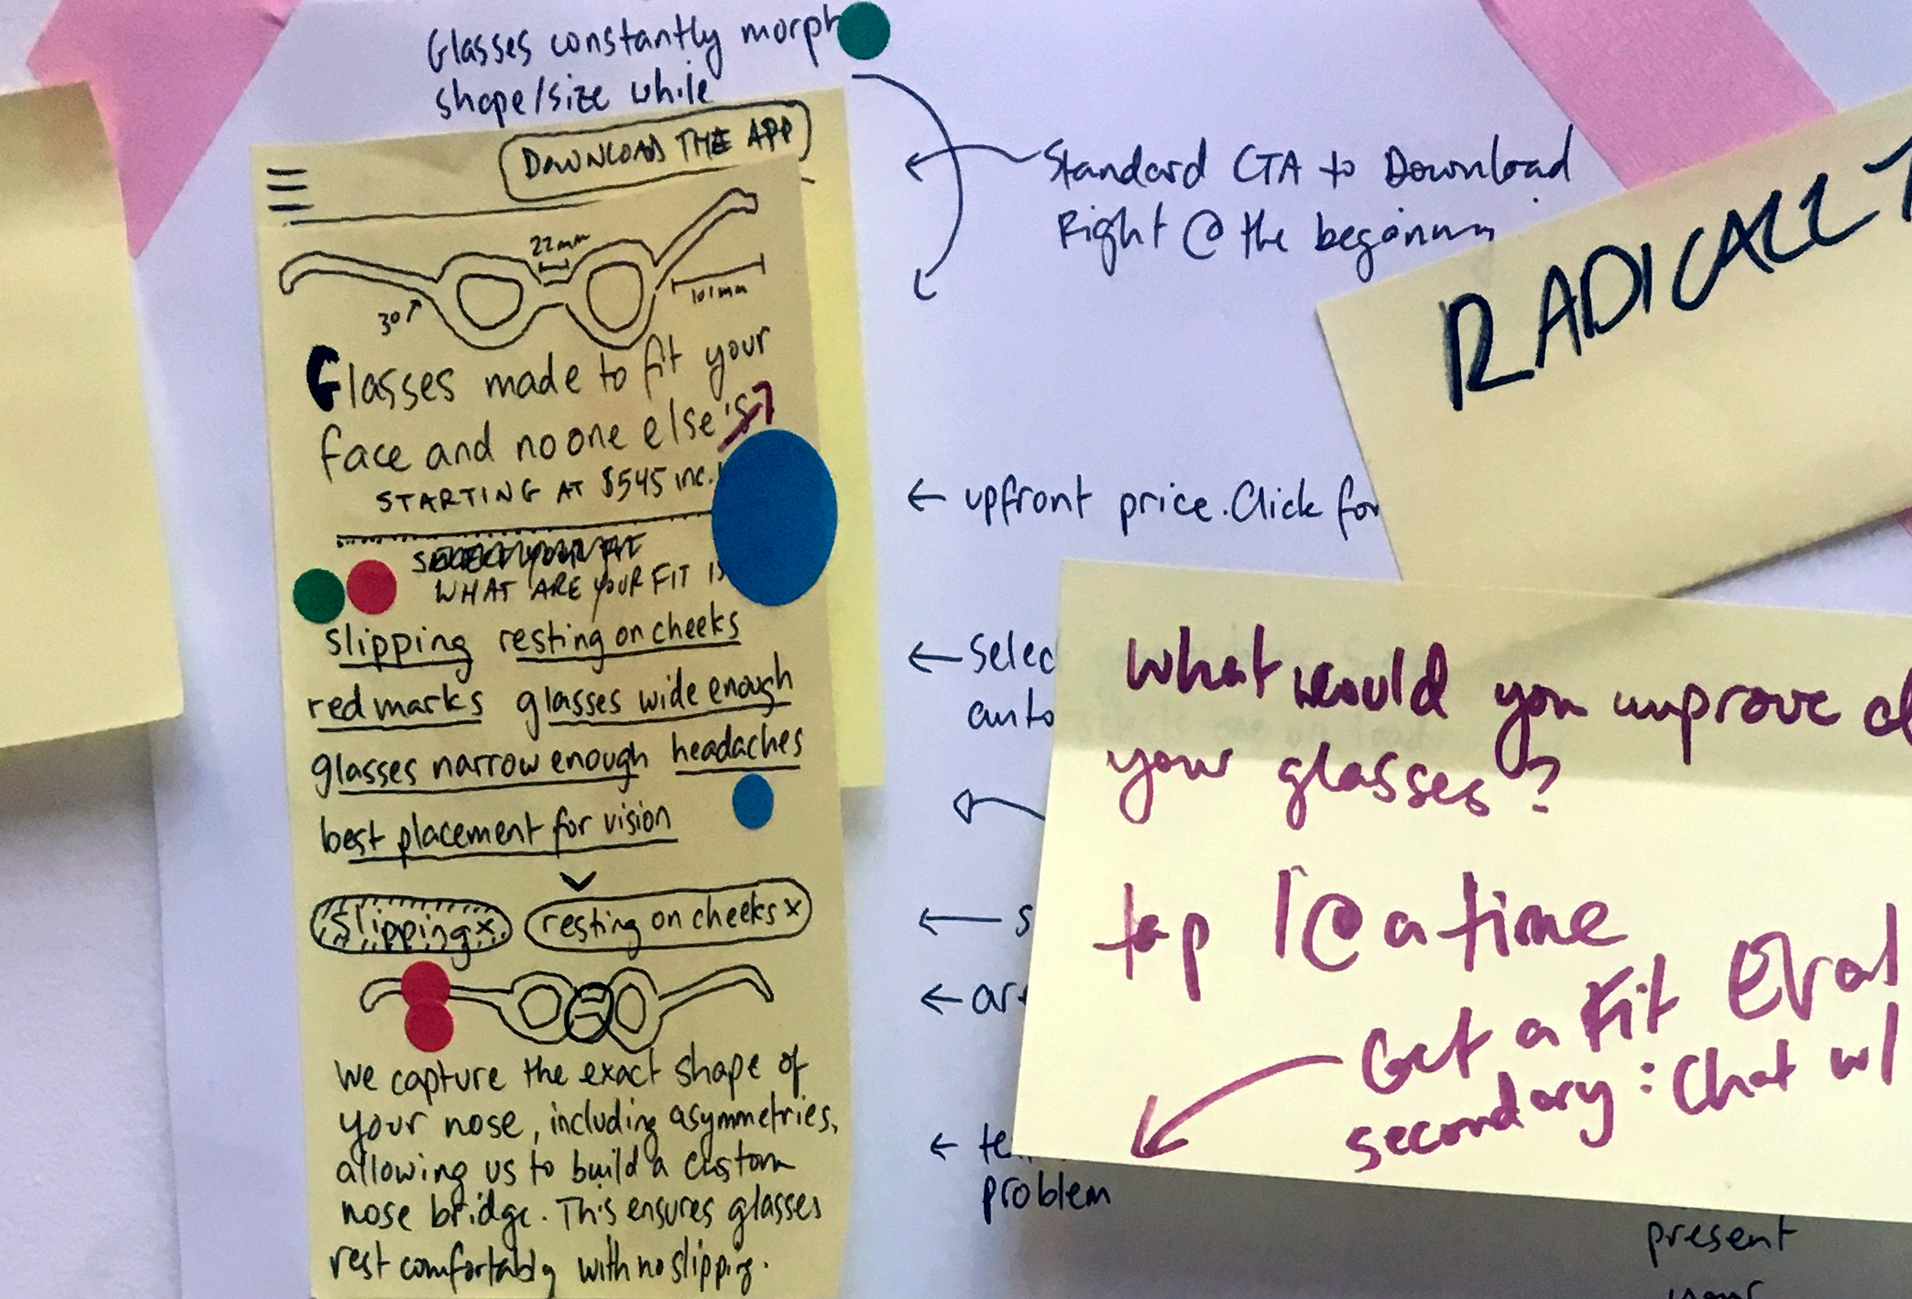 Glasses constantly morph
shape/size while
DOWNLOAD THE APP
22mm
101mm
30
Glasses made to fit your
face and no one else's
STARTING AT $545 inc.
WHAT ARE YOUR FIT
slipping resting on cheeks
red marks glasses wide enough
glasses narrow enough headaches
best placement for vision
slipping x resting on cheeks x
We capture the exact shape of
your nose, including asymmetries,
allowing us to build a custom
nose bridge. This ensures glasses
rest comfortably with no slipping.
Standard CTA to Download
Right @ the beginning
← upfront price. Click for
← Selec
auto
← s
←
←
problem
RADICALLY
What would you improve
your glasses?
tap 1 @ a time
Get a Fit Eval
secondary: Chat w/
present
your